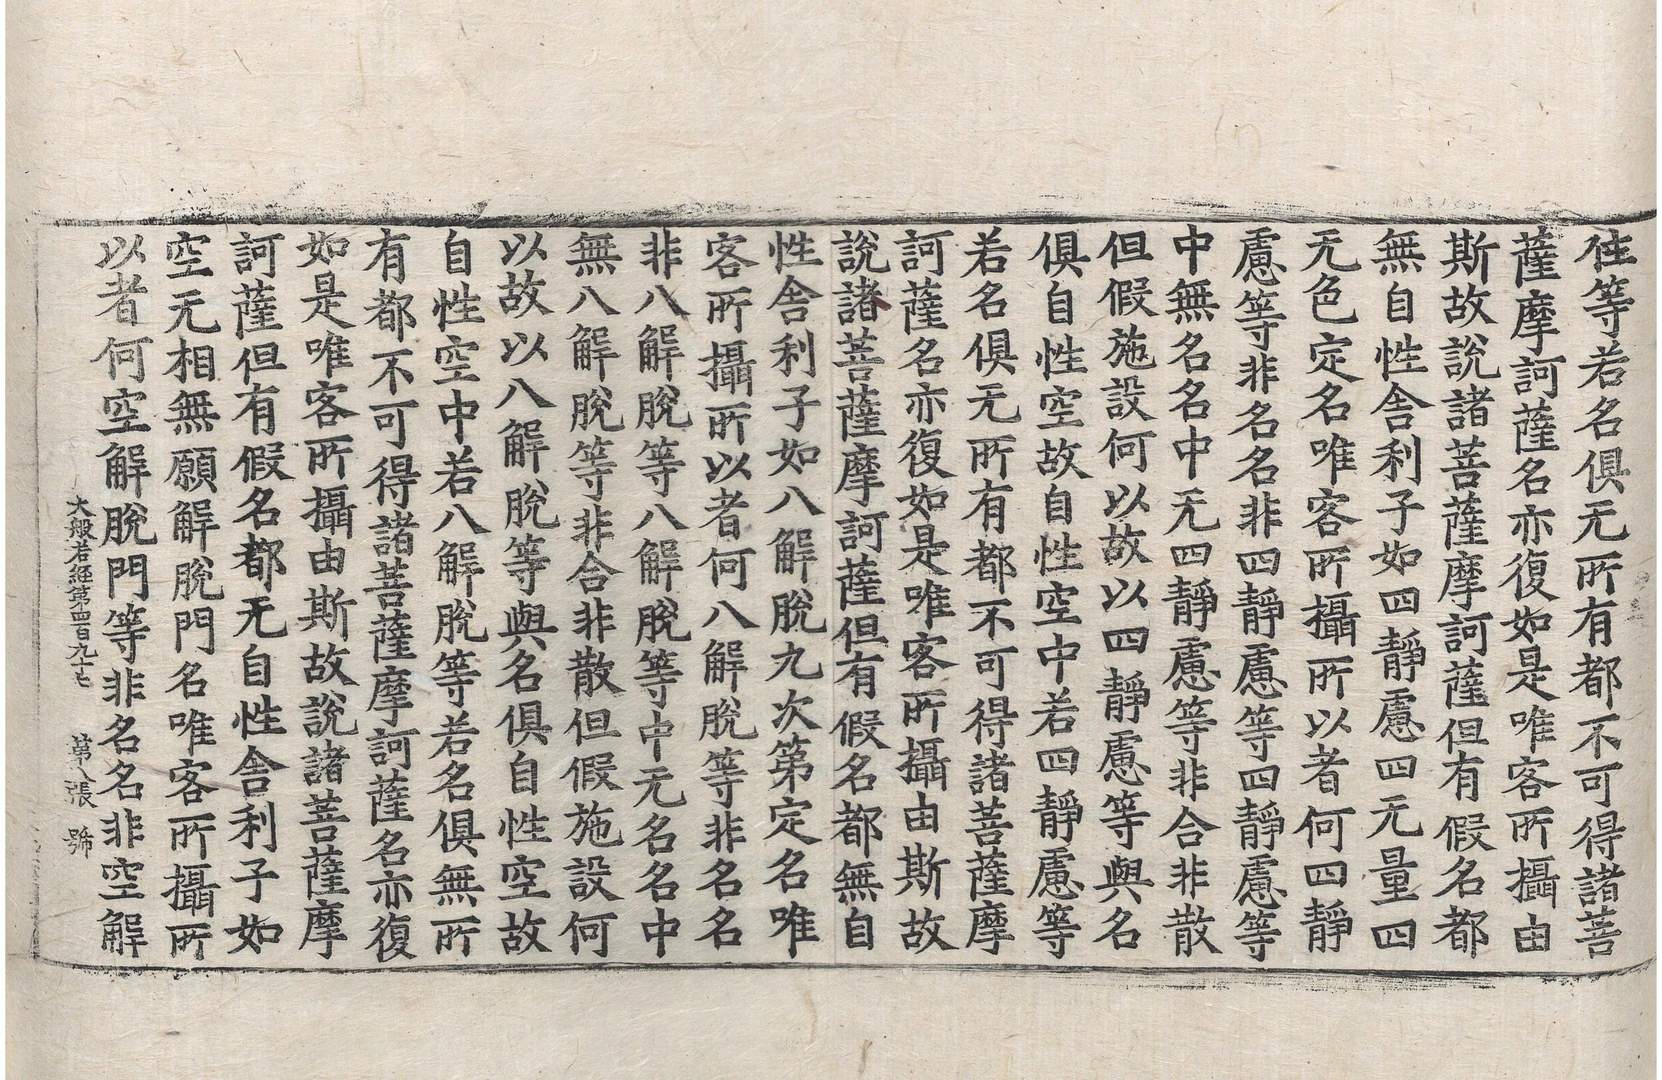 住等若名俱无所有都不可得諸菩
薩摩訶薩名亦復如是唯客所攝由
斯故說諸菩薩摩訶薩但有假名都
無自性舍利子如四靜慮四无量四
无色定名唯客所攝所以者何四靜
慮等非名名非四靜慮等四靜慮等
中無名名中无四靜慮等非合非散
但假施設何以故以四靜慮等與名
俱自性空故自性空中若四靜慮等
若名俱无所有都不可得諸菩薩摩
訶薩名亦復如是唯客所攝由斯故
說諸菩薩摩訶薩但有假名都無自
性舍利子如八解脫九次第定名唯
客所攝所以者何八解脫等非名名
非八解脫等八解脫等中无名名中
無八解脫等非合非散但假施設何
以故以八解脫等與名俱自性空故
自性空中若八解脫等若名俱無所
有都不可得諸菩薩摩訶薩名亦復
如是唯客所攝由斯故說諸菩薩摩
訶薩但有假名都无自性舍利子如
空无相無願解脫門名唯客所攝所
以者何空解脫門等非名名非空解
大般若經第四百九十七 第八張 號